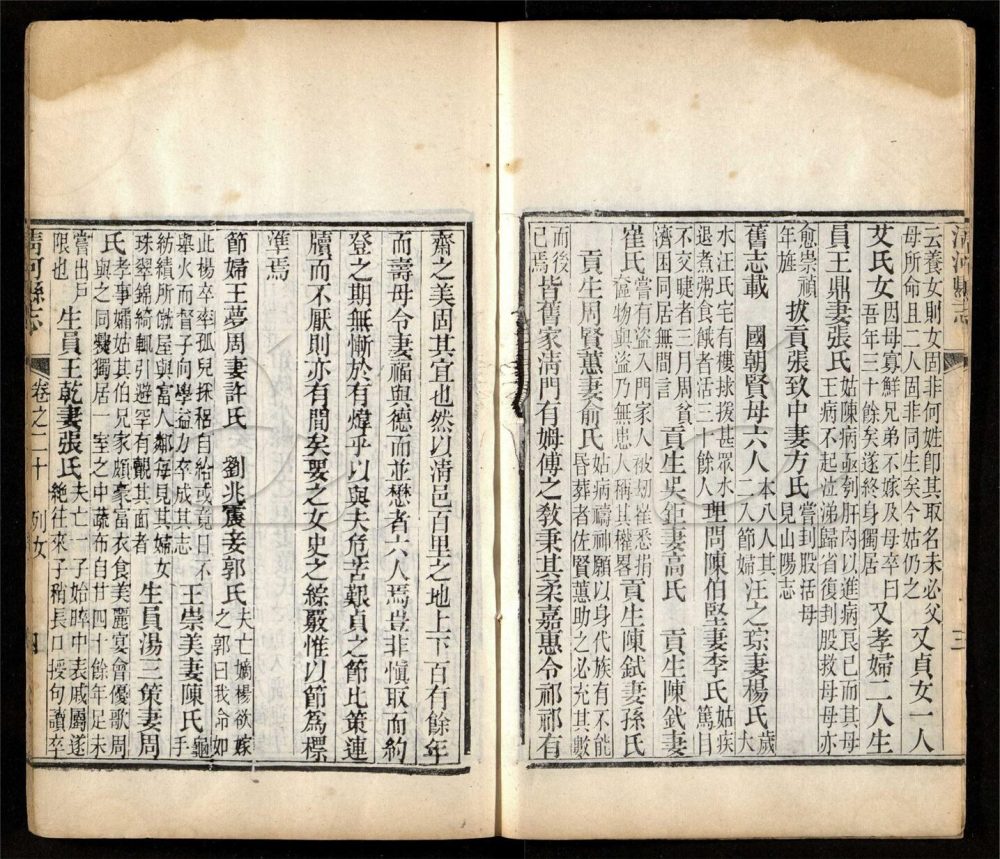 清河縣志
三
云養女則女固非何姓卽其取名未必父
母所命且二人固非同生矣今姑仍之
又貞女一人
艾氏女
因母寡鮮兄弟不嫁及母卒曰
吾年三十餘矣遂終身獨居
又孝婦二人生
員王鼎妻張氏
姑陳病亟刲肝肉以進病良已而其母
王病不起泣涕歸省復刲股救母母亦
愈崇禎
年旌
拔貢張致中妻方氏
嘗刲股活母
見山陽志
舊志載 國朝賢母六人
本八人其
二入節婦
汪之琮妻楊氏
歲
大
水汪氏宅有樓拯援甚眾水
退煮粥食餓者活三十餘人
理問陳伯堅妻李氏
姑疾
篤日
不交睫者三月周貧
濟困同居無間言
貢生吳鉅妻高氏 貢生陳 妻
崔氏
嘗有盜入門家人被刼崔悉捐
物與盜乃無患人稱其權畧
貢生陳鉽妻孫氏
貢生周賢蕙妻俞氏
姑病禱神願以身代族有不能
昏葬者佐賢蕙助之必充其數
而後
已焉
皆舊家淸門有姆傅之敎秉其柔嘉惠令祁祁有
齋之美固其宜也然以淸邑百里之地上下百有餘年
而壽母令妻福與德而並懋者六人焉豈非愼取而約
登之期無慚於有煒乎以與夫危苦艱貞之節比策連
牘而不厭則亦有間矣要之女史之綜嚴惟以節為標
準焉
節婦王夢周妻許氏 劉兆震妾郭氏
夫亡嫡楊欲嫁
之郭曰我命如
此楊卒率孤兒採稆自給或竟日不
舉火而督子向學益力卒成其志
王崇美妻陳氏
龜
手
紡績所僦屋與富人鄰每見其婦女
珠翠錦綺輒引避罕有覩其面者
生員湯三策妻周
氏
孝事孀姑其伯兄家頗豪富衣食美麗宴會優歌周
氏與之同爨獨居一室之中蔬布自甘四十餘年足未
嘗出戶
限也
生員王乾妻張氏
夫亡一子始晬中表戚屬遂
絶往來子稍長口授句讀卒
清河縣志
卷之二十 列女
四